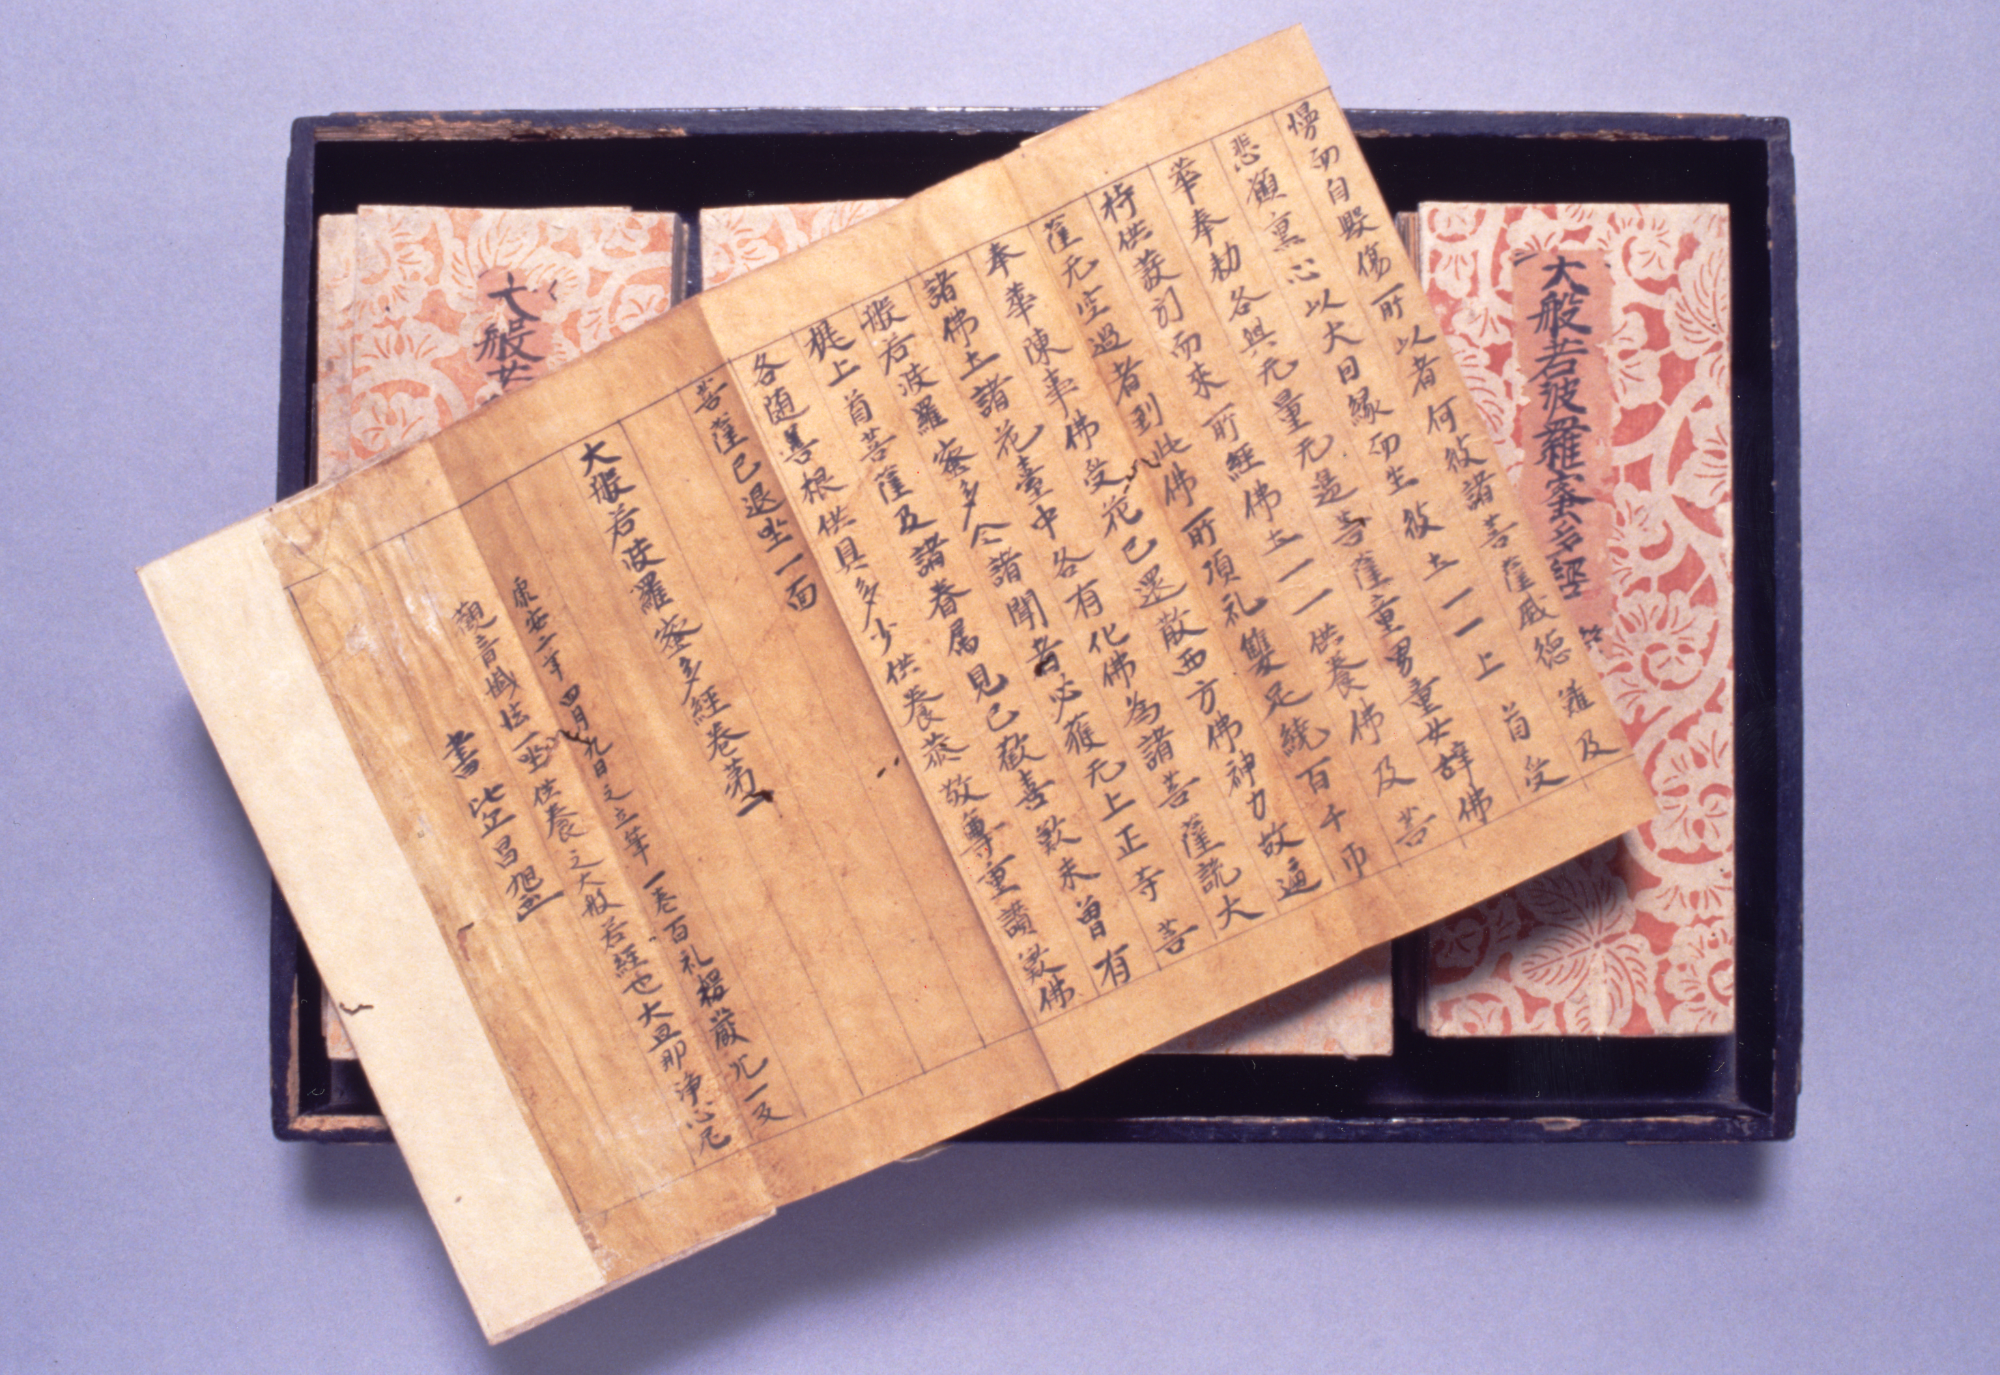 慢而自毀傷所以者何彼諸菩薩威德難及
悲願熏心以大因縁而生彼土一一上首受
華奉勅各與无量无邊菩薩童男童女辞佛
持供養訶而來所經佛土一一供養佛及菩
薩无空過者到此佛所頂礼雙足繞百千帀
奉華陳事佛受花已還散西方佛神力故遍
諸佛土諸花臺中各有化佛為諸菩薩説大
般若波羅蜜多令諸聞者必獲无上正等菩
提上首菩薩及諸眷属見已歓喜歎未曽有
各随善根供具多少供養恭敬尊重讃歎佛
菩薩已退坐一面
大般若波羅蜜多經卷第一
康安二年四月九日之立筆一巻百礼楞嚴咒一反
觀音懴法一坐供養之大般若經也大旦那浄心尼
書比丘昌旭
大般若波羅蜜多經
大般若